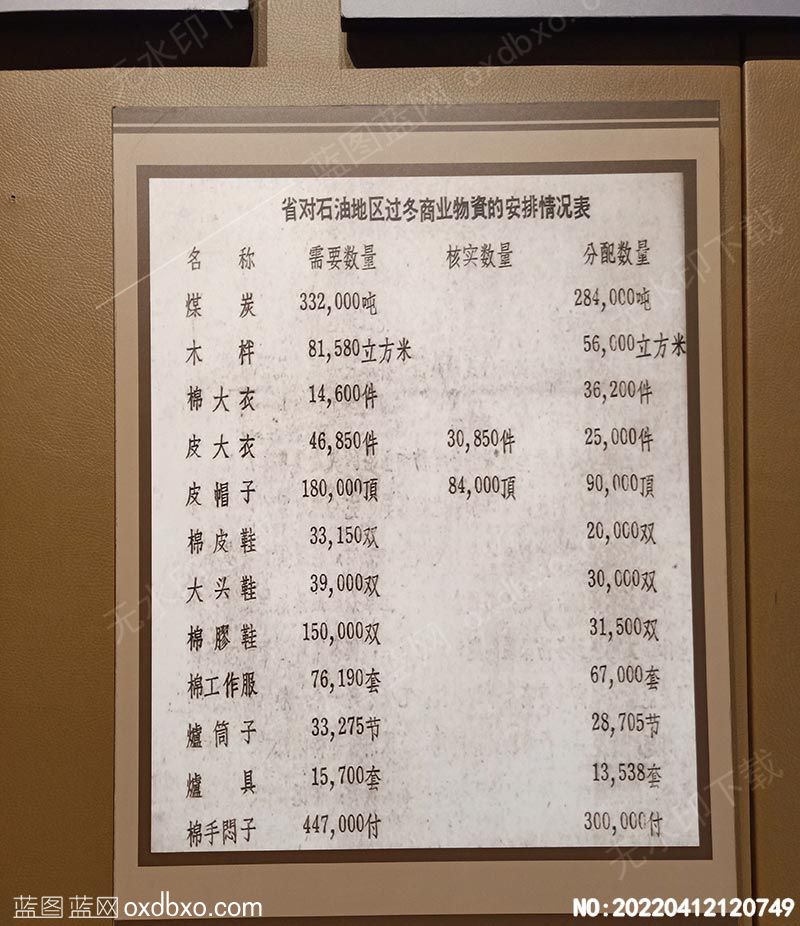 省对石油地区过冬商业物資的安排情况表
名 称 需要数量 核实数量 分配数量
煤 炭 332,000吨 284,000吨
木 柈 81,580立方米 56,000立方米
棉大衣 14,600件 36,200件
皮大衣 46,850件 30,850件 25,000件
皮帽子 180,000頂 84,000頂 90,000頂
棉皮鞋 33,150双 20,000双
大头鞋 39,000双 30,000双
棉膠鞋 150,000双 31,500双
棉工作服 76,190套 67,000套
爐筒子 33,275节 28,705节
爐 具 15,700套 13,538套
棉手悶子 447,000付 300,000付
蓝图蓝网oxdbxo.com
NO:20220412120749